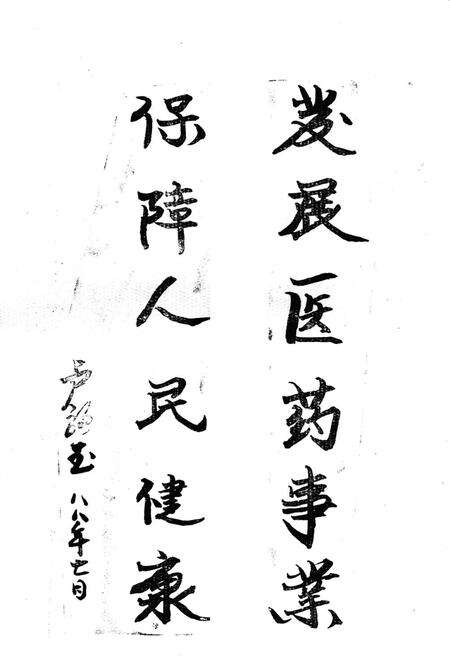 发展医药事业
保障人民健康
八八年七月